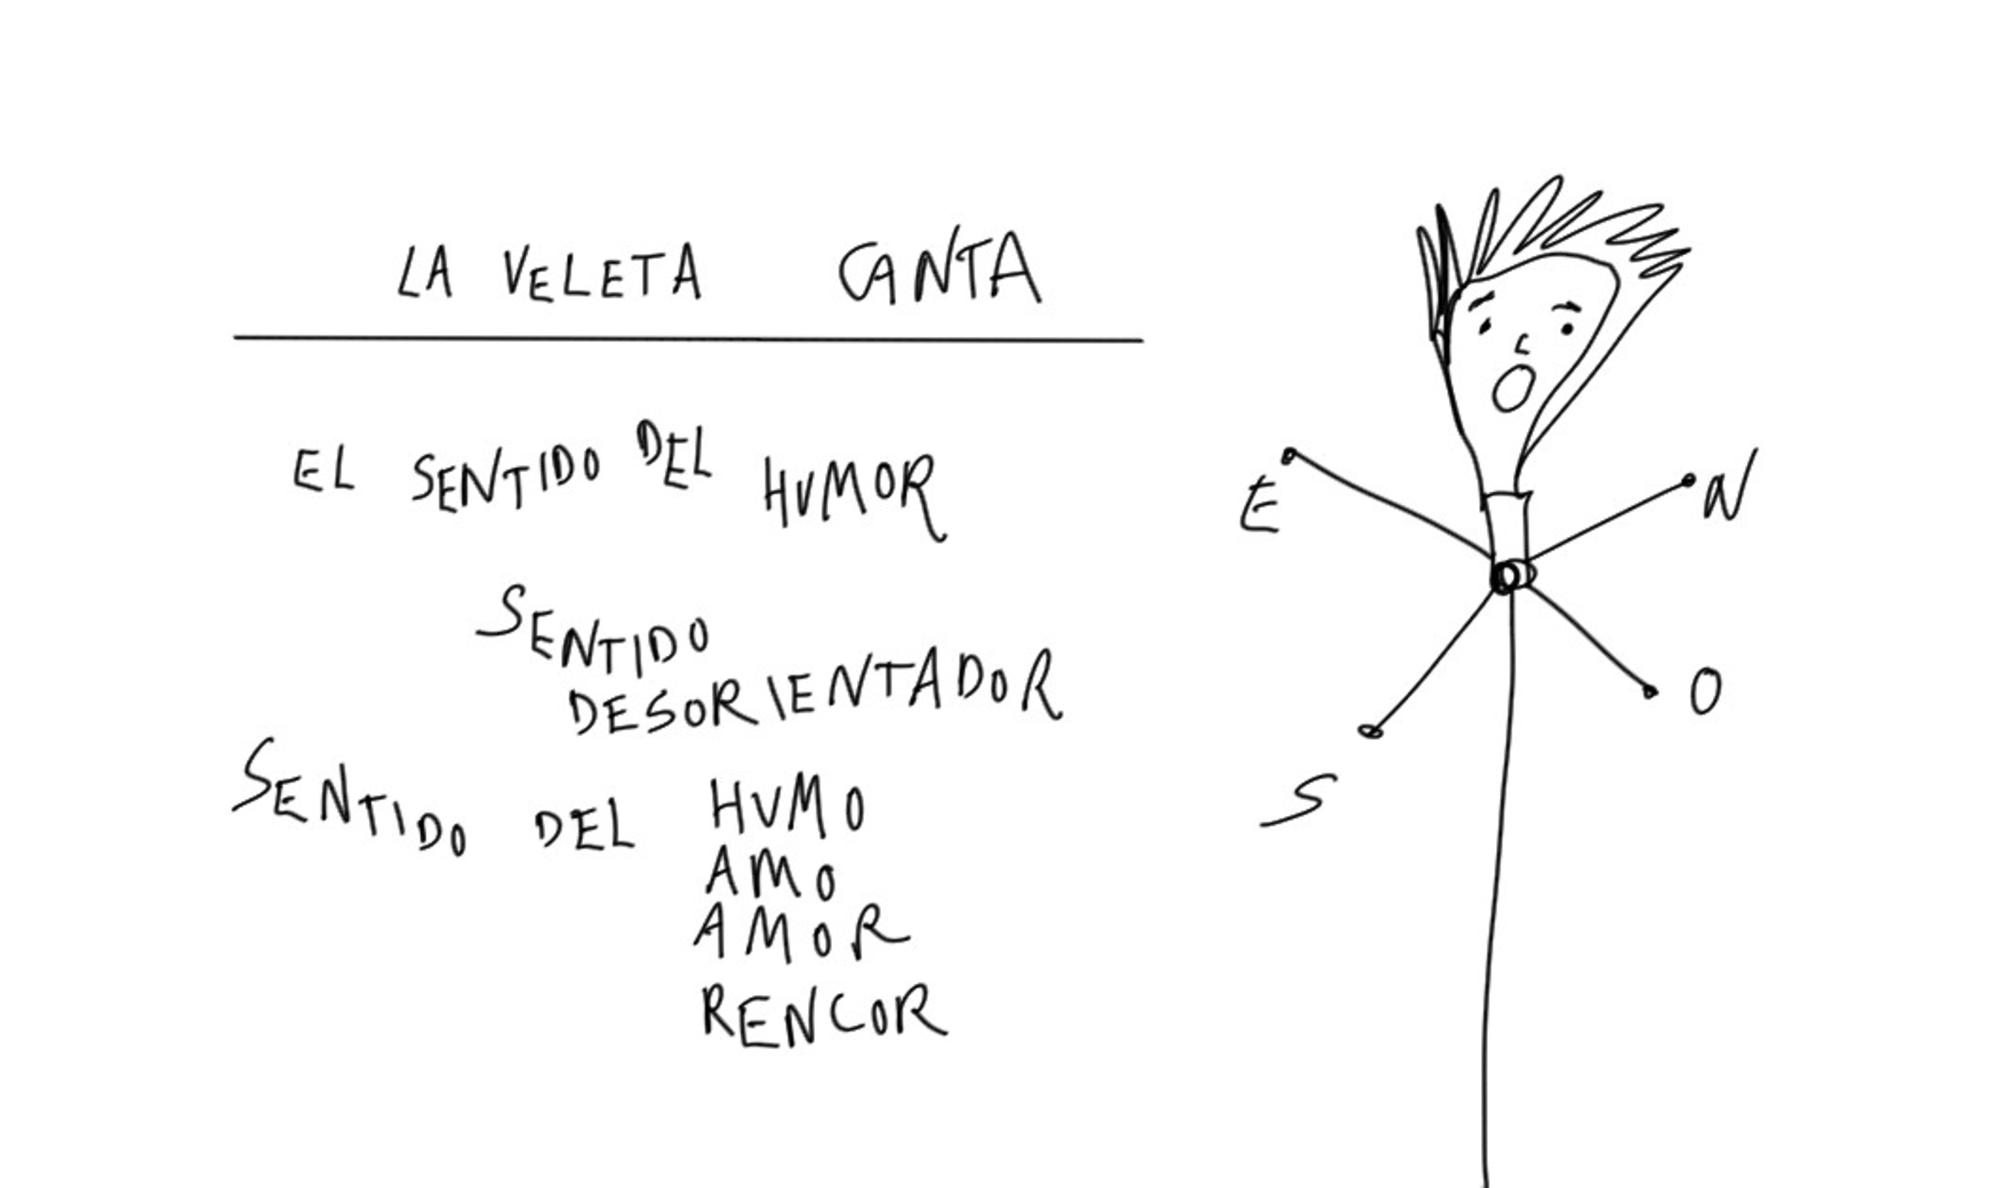 LA VELETA CANTA
EL SENTIDO DEL HUMOR
SENTIDO
DESORIENTADOR
SENTIDO DEL HUMO
AMO
AMOR
RENCOR
E
N
S
O